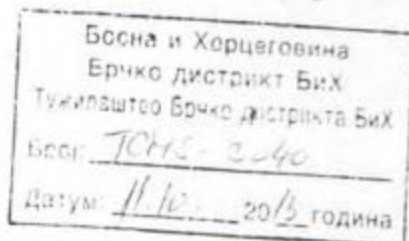 Босна и Херцеговина
Брчко дистрикт БиХ
Тужилаштво Брчко дистрикта БиХ
Број:
Датум: 11.10. 2013 година